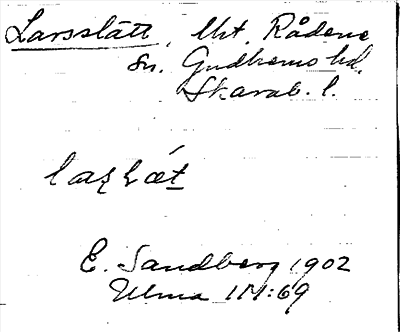 Larsslätt, Uht. Rådene
sn. Gudhems hd.
Skarab. l.
E. Sandberg 1902
Ulma 111:69